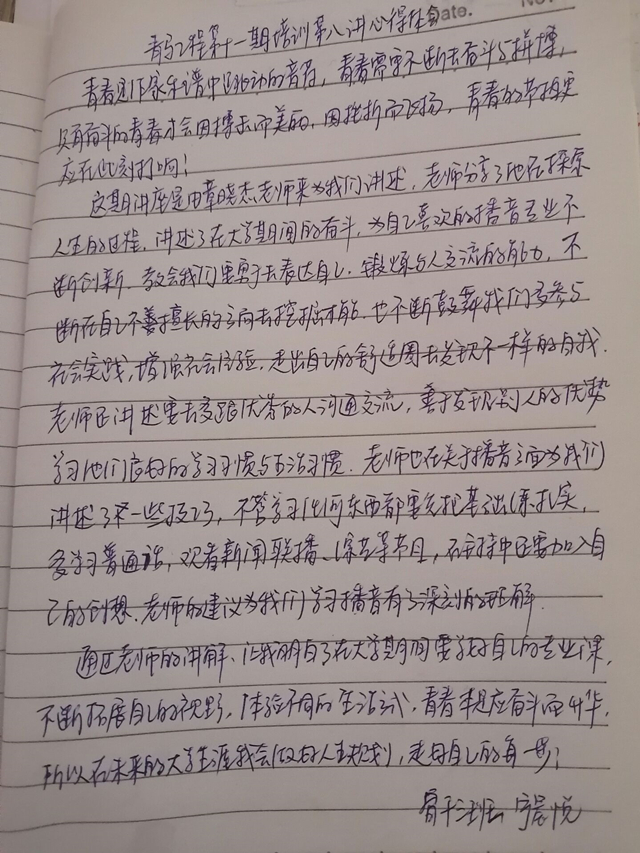 Date. No.
青马工程第十一期培训第八讲心得体会
青春是作家乐谱中跃动的音符,青春需要不断去奋斗与拼搏,
只有奋斗的青春才会因搏击而美丽,因挫折而飞扬,青春的节拍更
应在此刻打响!
这期讲座是由章晓杰老师来为我们讲述,老师分享了他在探索
人生的过程,讲述了在大学期间的奋斗,为自己喜欢的播音专业不
断创新,教会我们要勇于去表达自己,锻炼与人交流的能力,不
断在自己不善擅长的方向去挖掘才能,也不断鼓舞我们多参与
社会实践,增强社会经验,走出自己的舒适圈去发现不一样的自我.
老师还讲述要去多跟优秀的人沟通交流,善于发现别人的优势
学习他们良好的学习习惯与生活习惯.老师也在关于播音方面为我们
讲述了一些技巧,不管学习任何东西都要先把基础练扎实,
多学习普通话,观看新闻联播、综艺等节目,在主持中还要加入自
己的创想.老师的建议为我们学习播音有了深刻的理解.
通过老师的讲解、让我明白了在大学期间要学好自己的专业课,
不断拓展自己的视野,体验不同的生活方式,青春本就应奋斗而升华,
所以在未来的大学生涯我会做好人生规划,走好自己的每一步!
骨干班